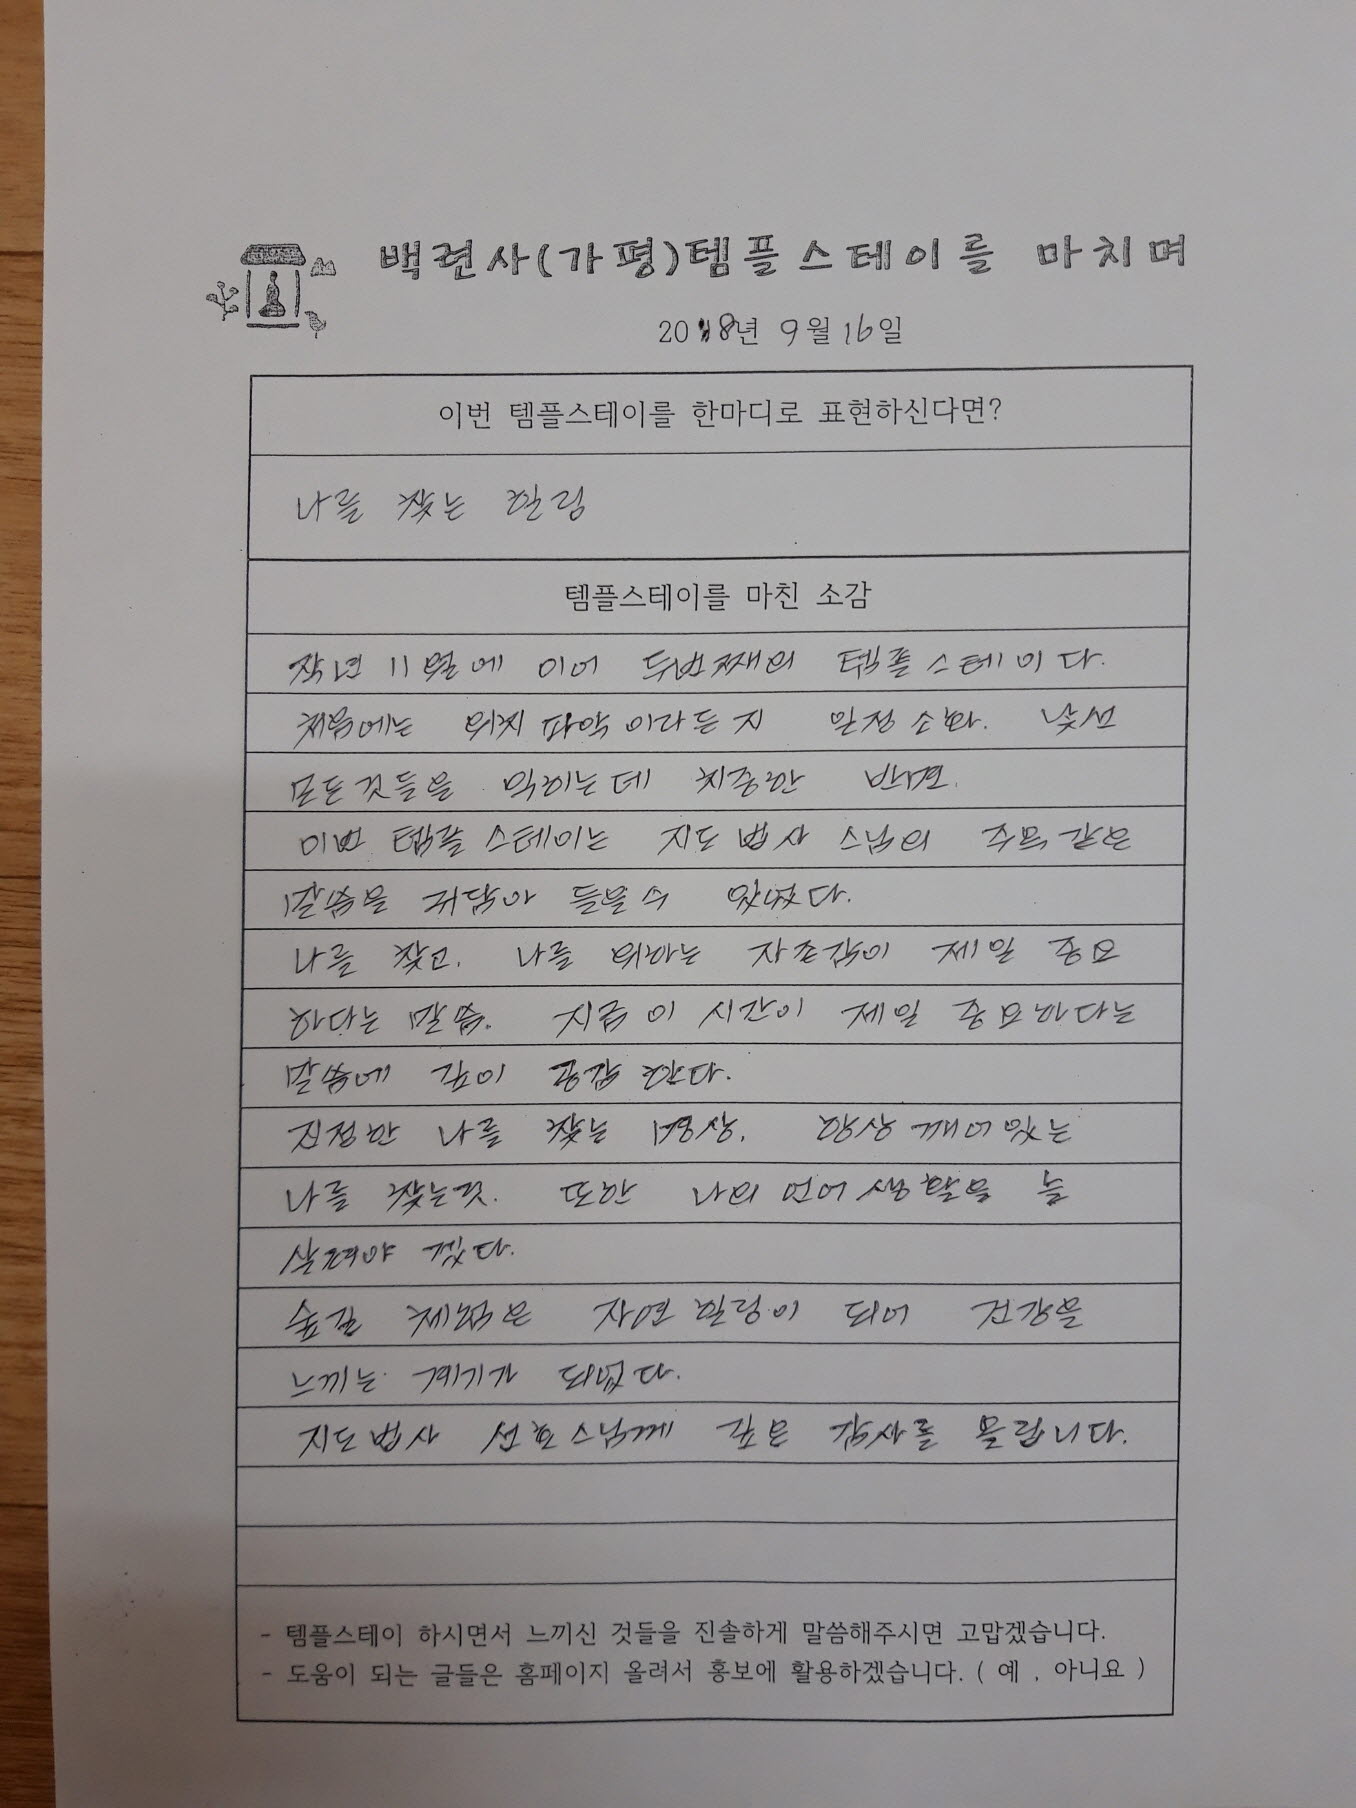 백련사(가평)템플스테이를 마치며
2018년 9월 16일
이번 템플스테이를 한마디로 표현하신다면?
나를 찾는 힐링
템플스테이를 마친 소감
작년 11월에 이어 두번째의 템플스테이다.
처음에는 위치 파악이라든지 일정소화. 낯선
모든것들을 익히는데 치중한 반면.
이번 템플스테이는 지도법사 스님의 주옥같은
말씀을 귀담아 들을수 있었다.
나를 찾고. 나를 위하는 자존감이 제일 중요
하다는 말씀. 지금 이 시간이 제일 중요하다는
말씀에 깊이 공감한다.
진정한 나를 찾는 명상. 항상 깨어있는
나를 찾는것. 또한 나의
실천해야 겠다.
숲길 체험은 자연 힐링이 되어 건강을
느끼는 계기가 되었다.
지도법사 스님께 깊은 감사를 올립니다.
- 템플스테이 하시면서 느끼신 것들을 진솔하게 말씀해주시면 고맙겠습니다.
- 도움이 되는 글들은 홈페이지 올려서 홍보에 활용하겠습니다. ( 예 . 아니요 )